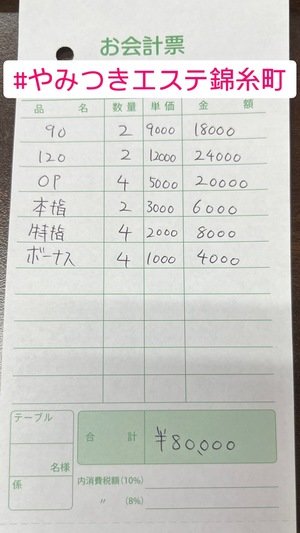 お会計票
#やみつきエステ錦糸町
品 名 数量 単価 金 額
90 2 9000 18000
120 2 12000 24000
OP 4 5000 20000
本指 2 3000 6000
特指 4 2000 8000
ボーナス 4 1000 4000
テーブル
名様
係
合 計 ¥80,000
内消費税額(10%)
〃 (8%)